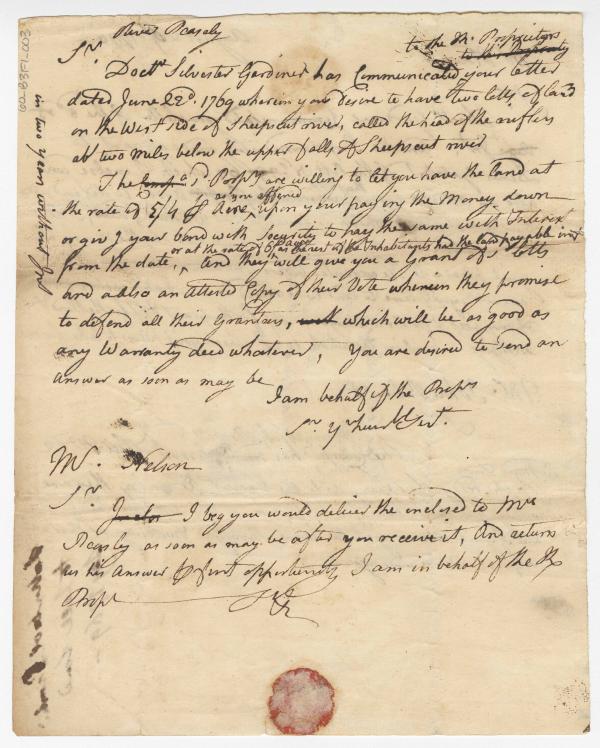 Peasely
to the Proprietors
Sr.
Doctr. Silvester Gardiner has Communicated your letter
dated June 22d. 1769 wherein you desire to have two lotts of land
on the West side of Sheepscut river, called the head of the
abt two miles below the upper falls of Sheepscut river
The sd. Proprs are willing to let you have the land at
as you offered
the rate of 5/4 Acre, upon your paying the Money down
or givg your bond with security to pay the same with Interest
or at the rate of as the rest of the Inhabitants had the land payable
in two years without Int
from the date, and they will give you a Grant of sd lotts
and also an attested Copy of their Vote wherein they promise
to defend all their Grantees, which will be as good as
any Warranty deed whatever, You are desired to send an
Answer as soon as may be
I am behalf of the Proprs
Sr. yr humbl Servt.
Mr. Nelson
Sr. I beg you would deliver the inclosed to Mr
Peasley as soon as may be after you receive it, And return
us his answer first opportunity I am in behalf of the
Propr
60-83F1-003